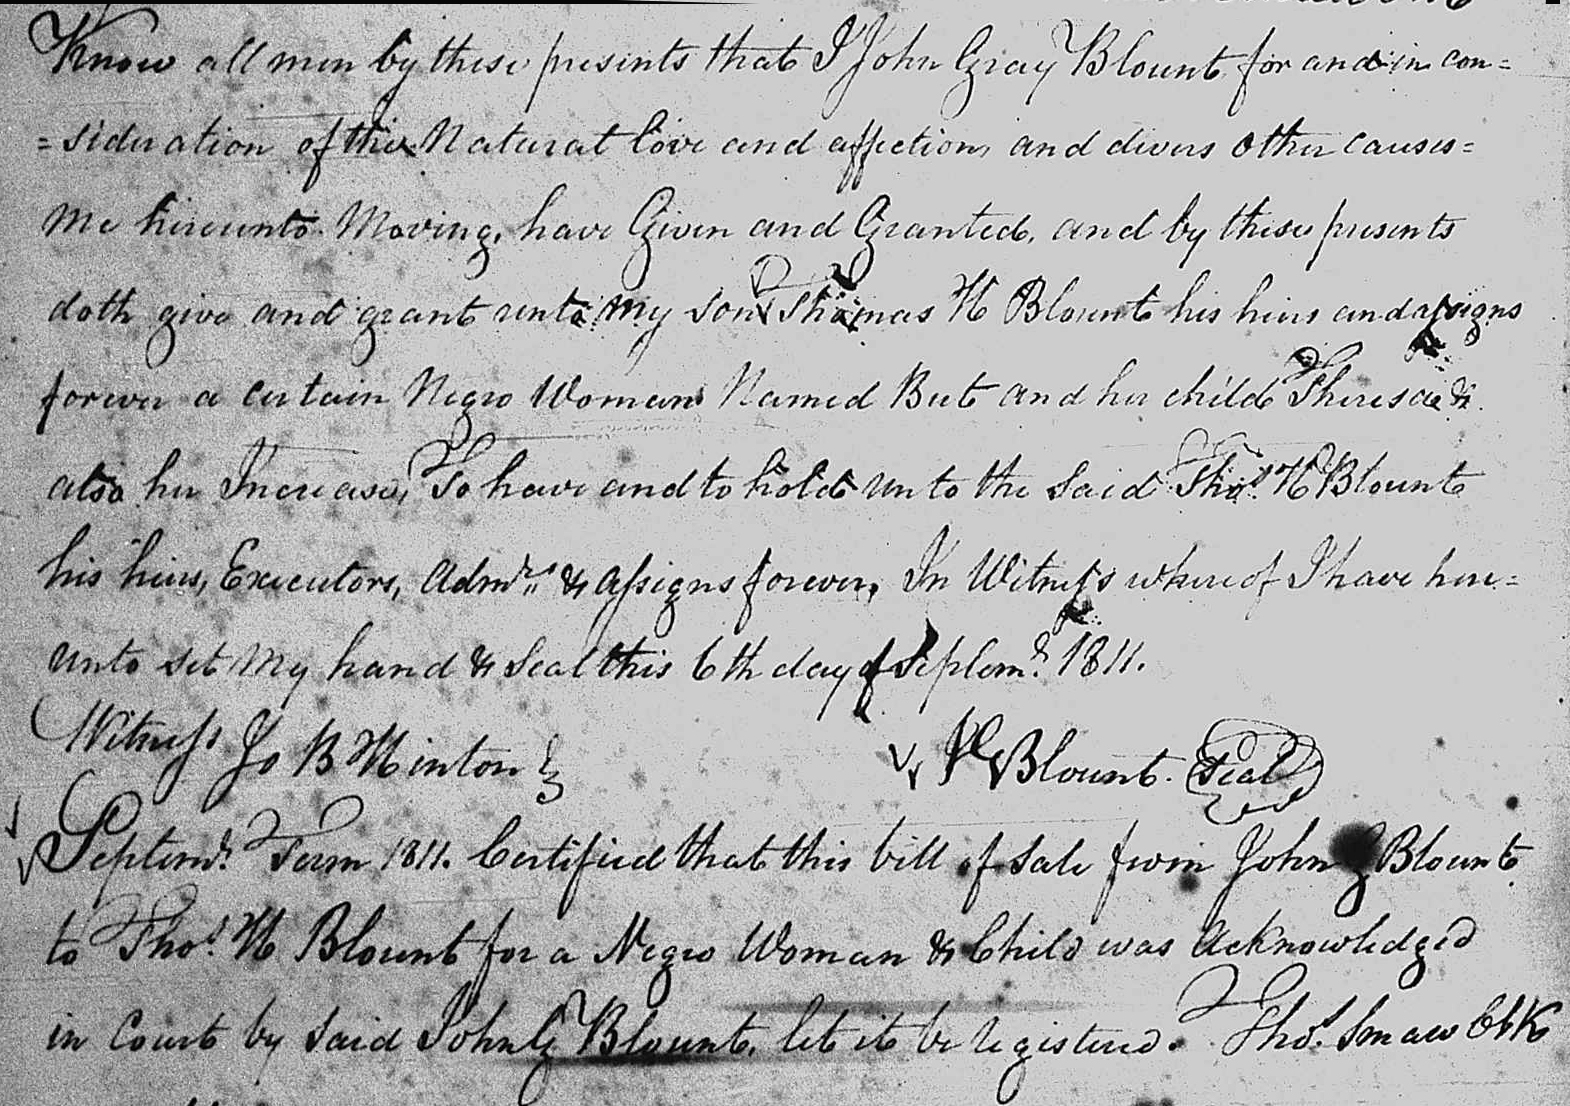 Know all men by these presents that I John Gray Blount for and in con=
=sideration of the Natural love and affection, and divers other causes=
me hereunto Moving, have Given and Granted, and by these presents
doth give and grant unto my son Thomas H Blount his heirs and assigns
forever a certain Negro Woman Named Bet and her child Theresa &
also her Increase, To have and to hold unto the said Thos. H Blount
his heirs, Executors, Admrs. & assigns forever, In Witness whereof I have here=
unto set my hand & seal this 6th day of Septemr. 1811.
Witness Jo B Hinton
Blount. Seal
Septemr. Term 1811. Certified that this bill of sale from John G Blount
to Thos. H Blount for a Negro Woman & Child was Acknowledged
in Court by said John G Blount, let it be registered. Thos. Smaw Clk